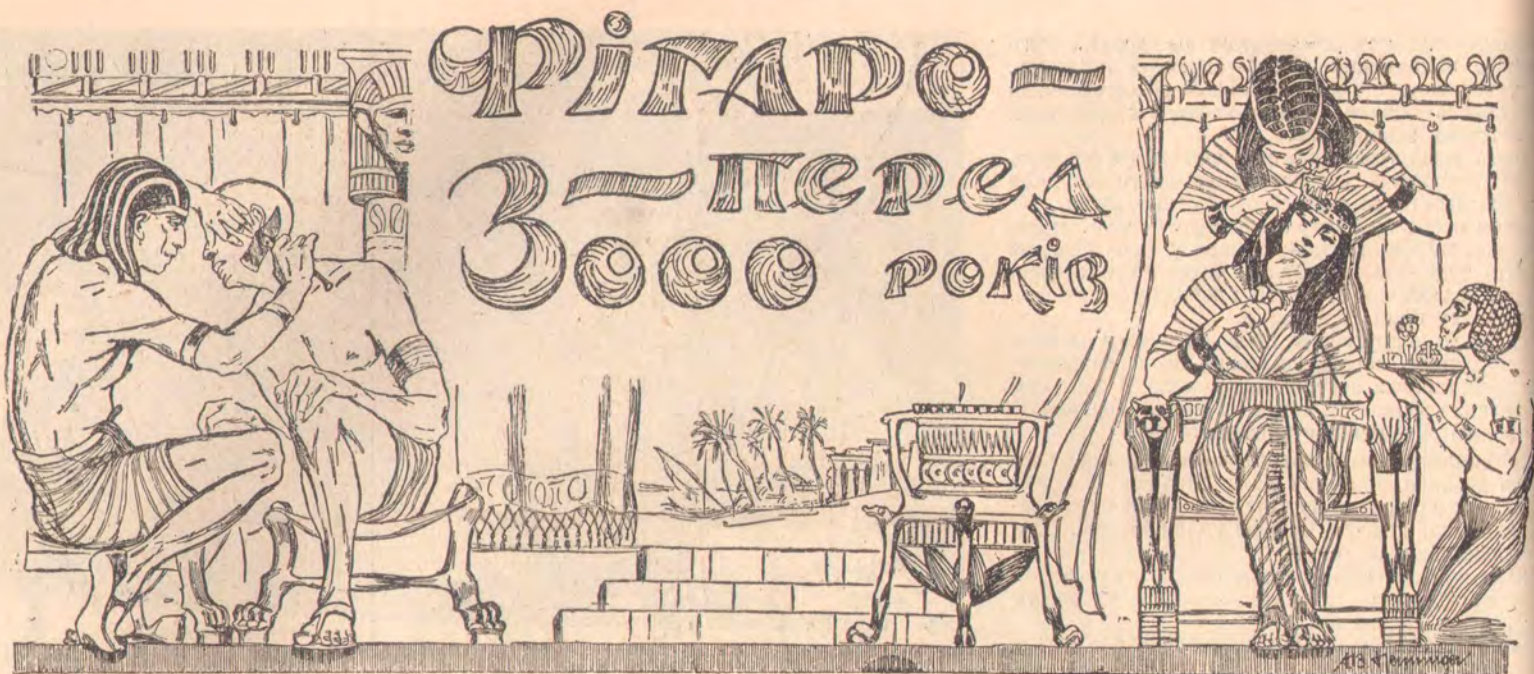 Фігаро —
3 — перед
000 років